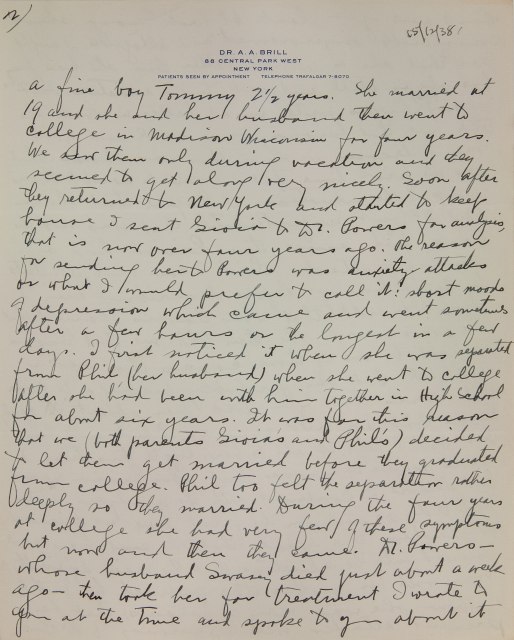 2)
15/12/38
DR. A. A. BRILL
88 CENTRAL PARK WEST
NEW YORK
PATIENTS SEEN BY APPOINTMENT TELEPHONE TRAFALGAR 7-8070
a fine boy Tommy 2½ years. She married at
19 and she and her husband then went to
college in Madison Wisconsin for four years.
We saw them only during vacation and they
seemed to get along very nicely. Soon after
they returned to New York and started to keep
house I sent Gioia to Dr. Powers for analysis,
that is now over four years ago. The reason
for sending her to Powers was anxiety attacks
or what I would prefer to call it: short moods
of depression which came and went sometimes
after a few hours or the longest in a few
days. I first noticed it when she was separated
from Phil (her husband) when she went to college
after she had been with him together in High School
for about six years. It was for this reason
that we (both parents Gioia's and Phil's) decided
to let them get married before they graduated
from college. Phil too felt the separation rather
deeply so they married. During the four years
at college she had very few of these symptoms
but now and then they came. Dr. Powers —
whose husband Swasey died just about a week
ago — then took her for treatment I wrote to
you at the time and spoke to you about it